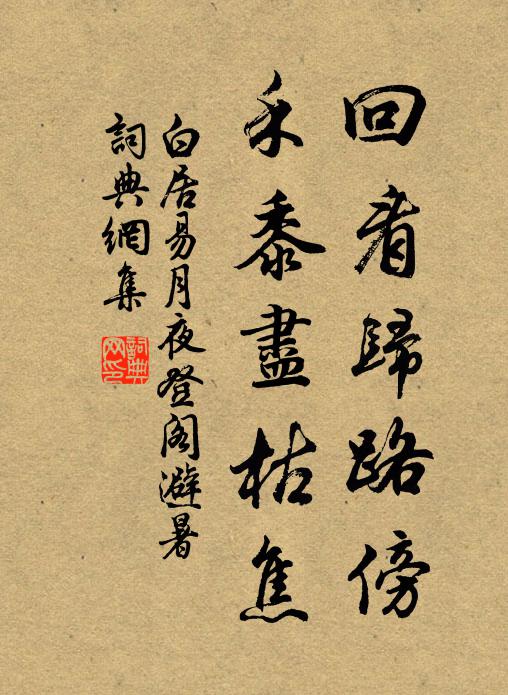 回看歸路傍
禾黍盡枯焦
白居易月夜登閣避暑
詞典網集
詞典網印